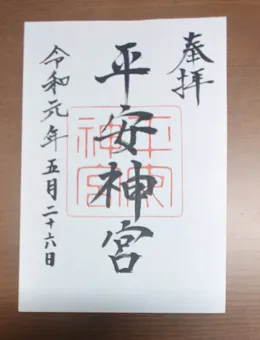 奉拝
平安神宮
平安神宮
令和元年五月二十六日